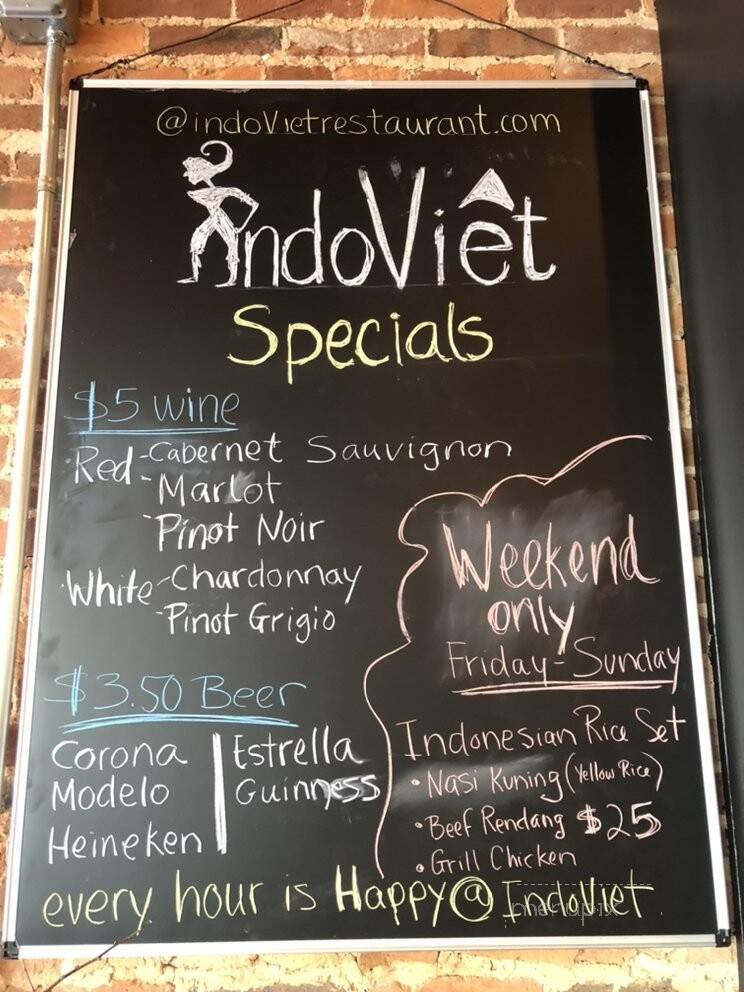 @indoVietrestaurant.com
IndoViêt
Specials
$5 wine
Red - Cabernet Sauvignon
- Marlot
- Pinot Noir
White - Chardonnay
- Pinot Grigio
$3.50 Beer
Corona
Modelo
Heineken
Estrella
Guinness
Weekend
only
Friday - Sunday
Indonesian Rice Set
• Nasi Kuning (Yellow Rice)
• Beef Rendang $25
• Grill Chicken
every hour is Happy @ IndoViet
menupix